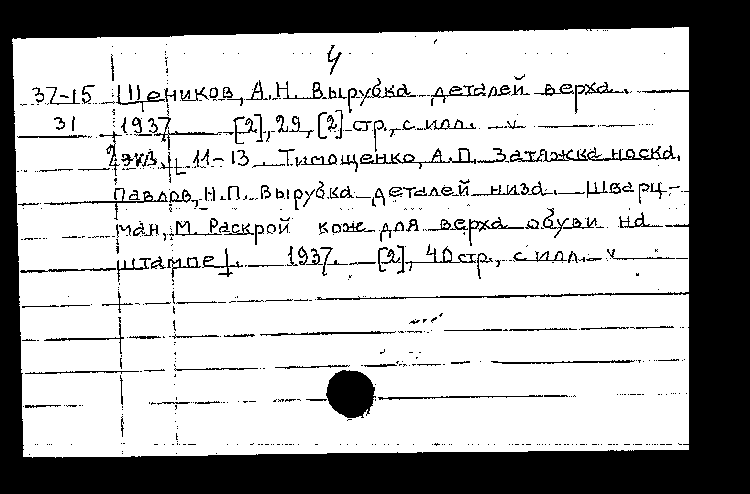 4
37-15 Щеников, А.Н. Вырубка деталей верха.
31 1937. [2], 29, [2] стр., с илл. v
2 экз. [ 11-13. Тимощенко, А.П. Затяжка носка.
Павлов, Н.П. Вырубка деталей низа. Шварц-
ман, М. Раскрой кож для верха обуви на
штампе]. 1937. [2], 40 стр., с илл. v